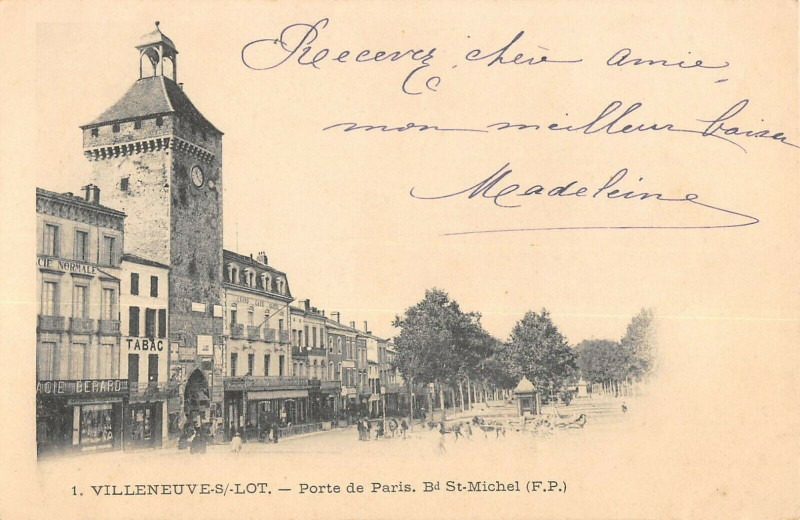 Recevez, chère amie,
mon meilleur baiser
Madeleine
CIE NORMALE
TABAC
ACIE BERARD
1. VILLENEUVE-S/-LOT. — Porte de Paris. Bd St-Michel (F.P.)